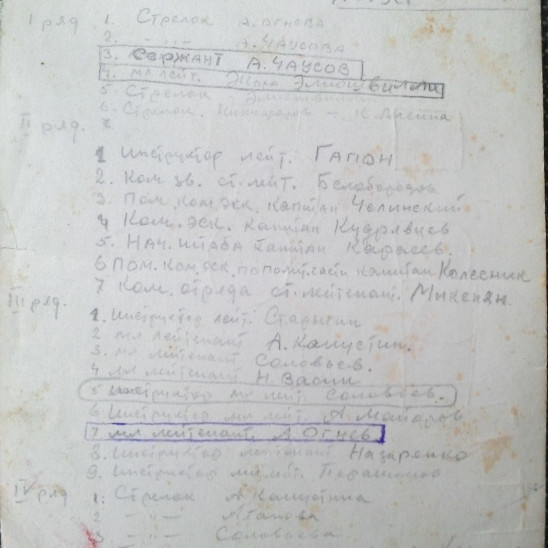 I ряд 1. Стрелок А. Огнева
2. -"- А. Чаусова
3. Сержант А. Чаусов
4. мл лейт. Элиошвилли
5. Стрелок
6. Стрелок
II ряд.
1 Инструктор лейт. Гапон
2. Ком. зв. ст. лейт. Белобородов
3. Пом. ком. эск. капитан Челинский
4 Ком. эск. капитан Кудрявцев
5. Нач. штаба капитан Карасев.
6 Пом. ком. эск. по полит. части капитан Колесник
7 Ком. отряда ст. лейтенант. Микенян.
III ряд.
1. Инструктор лейт. Старыгин
2 мл лейтенант А. Капустин.
3. мл лейтенант Соловьев.
4 мл лейтенант Н. Васин
5 Инструктор мл лейт. Соловьев.
6. Инструктор мл лейт. А. Майоров
7 мл лейтенант. А Огнев
8. Инструктор лейтенант Назаренко
9. Инструктор мл. лейт.
IV ряд 1. Стрелок А Капустина
2 -"- Агапова
3 -"- Соловьева